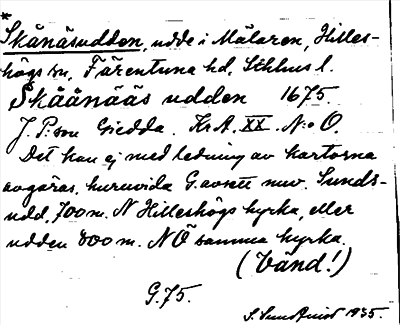 *
Skånäsudden, udde i Mälaren, Hilles-
högs sn, Färentuna hd, Sthlms l.
Skåånääs udden 1675.
J. P:son Giedda. KrA. XX. N:o O.
Det kan ej med ledning av kartorna
avgöras, huruvida G. avsett nuv. Sunds-
udd, 700 m. N Hilleshögs kyrka, eller
udden 800 m. NÖ samma kyrka.
(Vänd!)
G. 75.
1935.